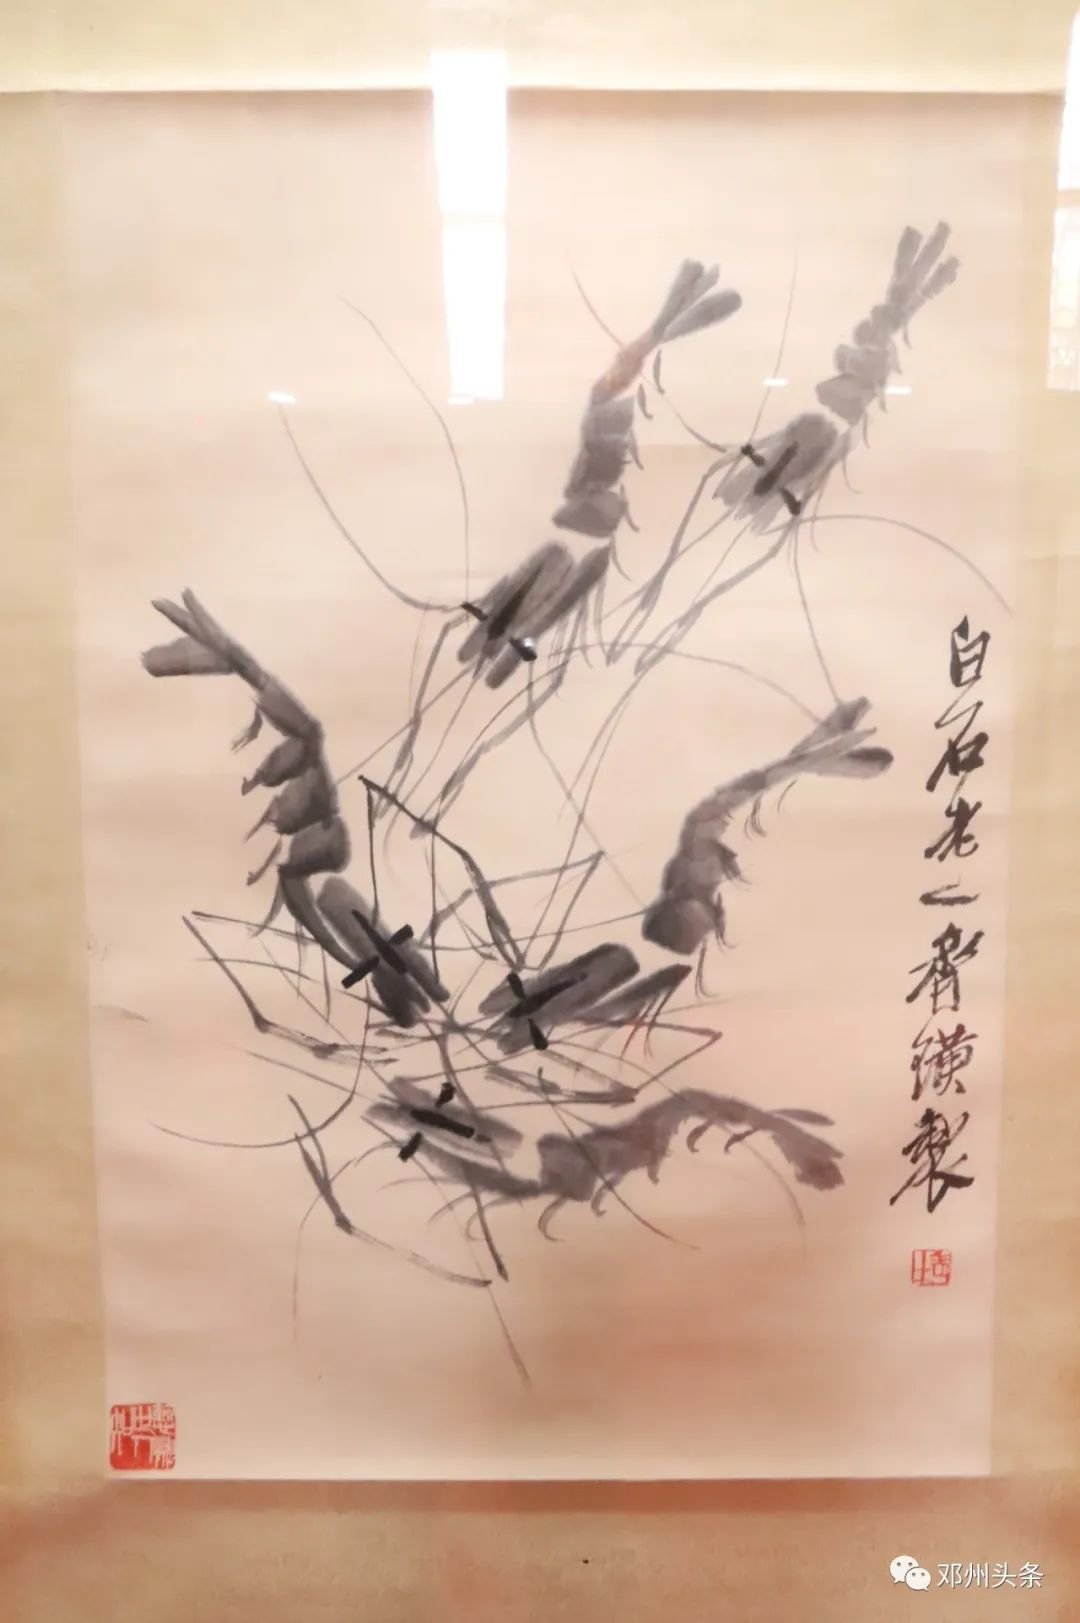 白石老人齊璜製
邓州头条